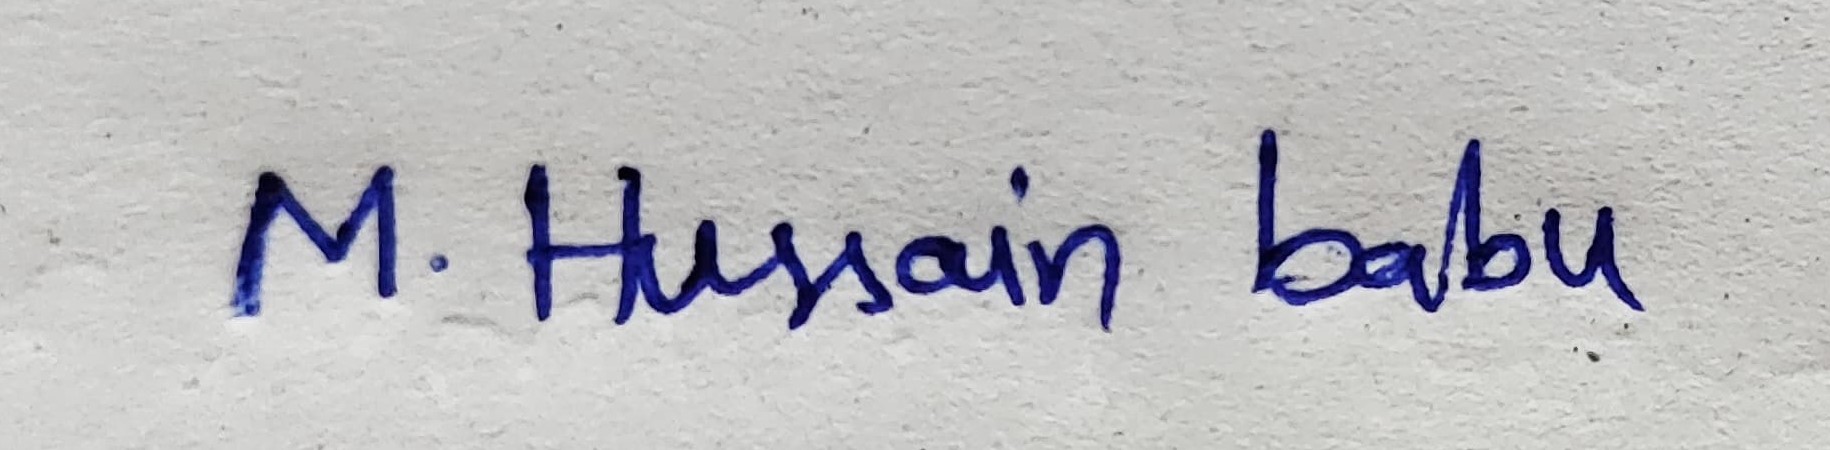 M. Hussain babu